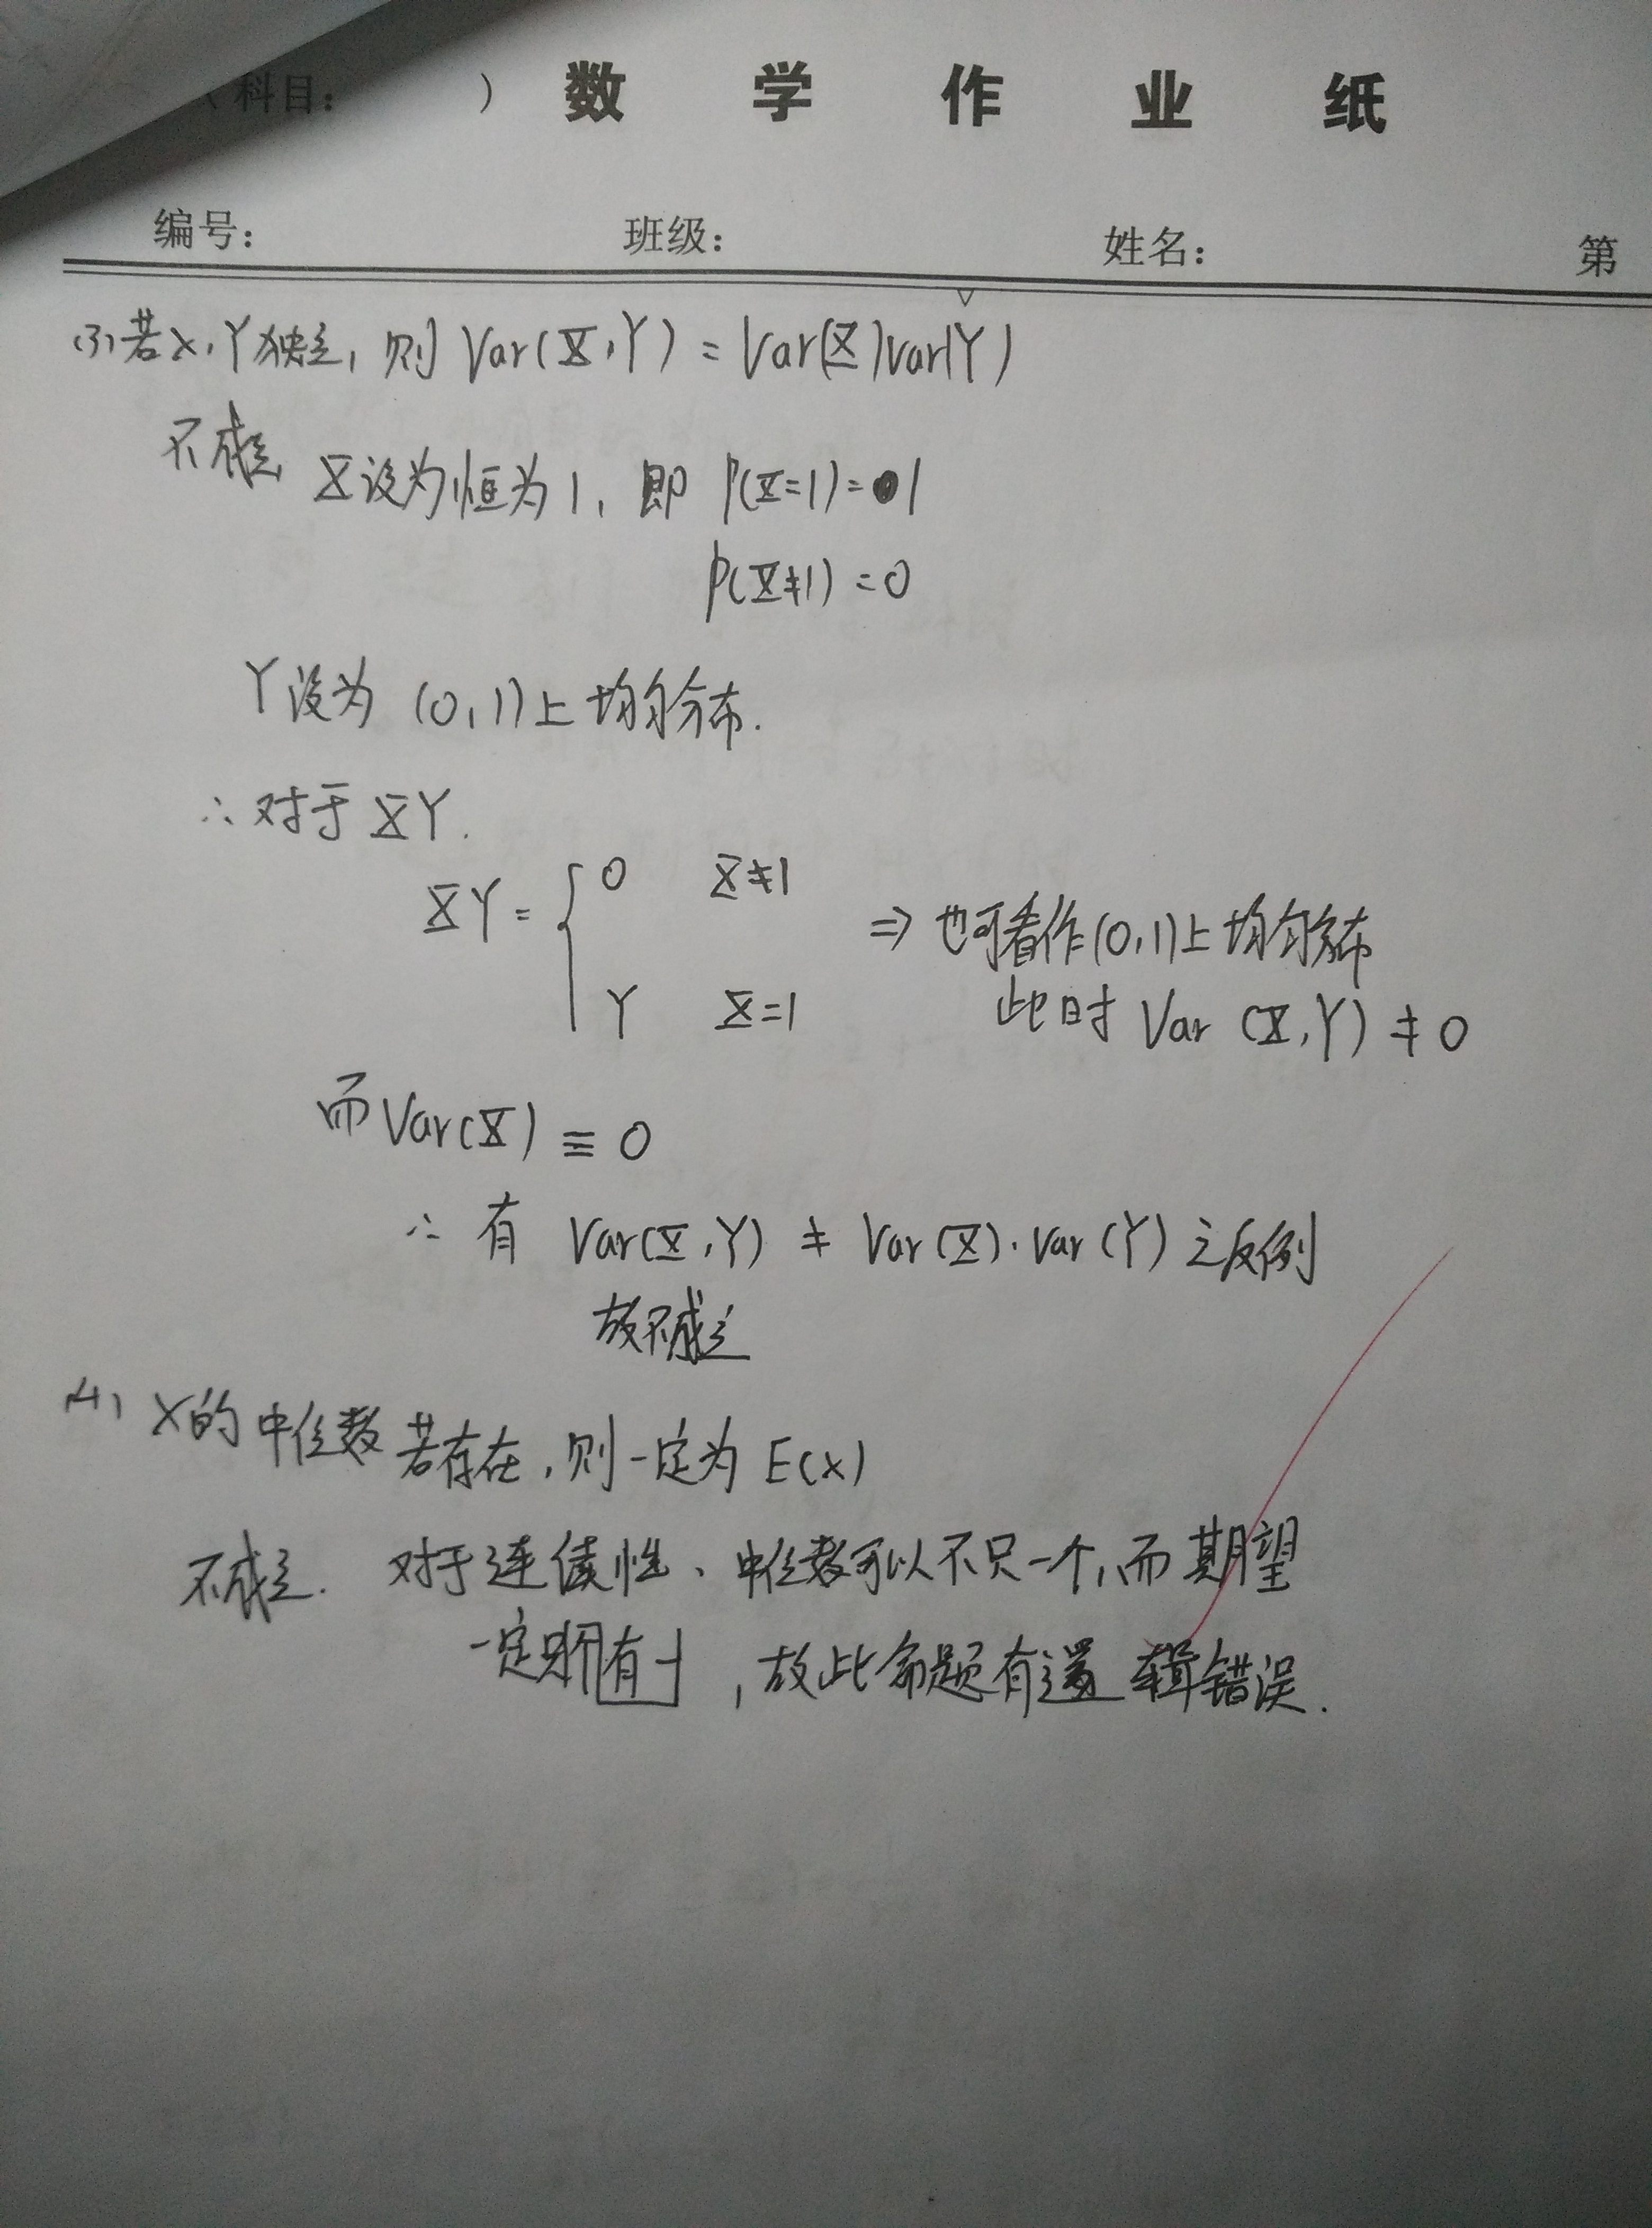 （科目： ） 数 学 作 业 纸
编号： 班级： 姓名： 第
(3) 若X,Y独立, 则 Var(X,Y) = Var(X)Var(Y)
不成立 X设为恒为1, 即 P(X=1)=1
P(X≠1)=0
Y设为 (0,1)上均匀分布.
∴对于XY.
XY = { 0 X≠1
Y X=1
⇒ 也可看作(0,1)上均匀分布
此时 Var (X,Y) ≠ 0
而Var(X) ≡ 0
∴ 有 Var(X,Y) ≠ Var(X)·Var(Y) 之反例
故不成立
(4) X的中位数若存在, 则一定为 E(X)
不成立. 对于连续性、中位数可以不只一个, 而期望
一定有一个, 故此命题有逻辑错误.